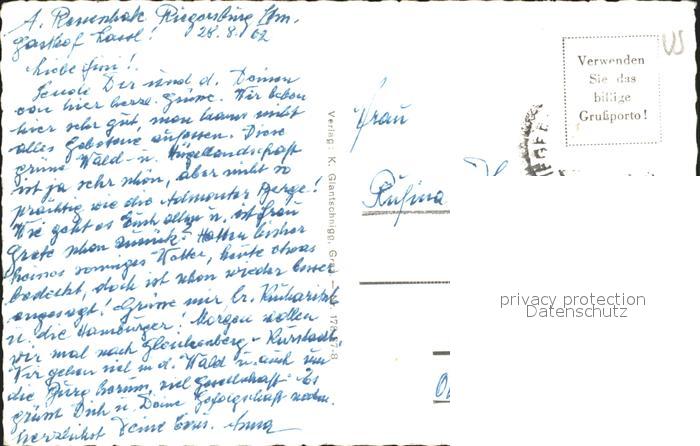 A. Riegersburg Stm.
Gasthof 28.8.62
Liebe
Sende Dir und d. Deinen
von hier herzl. Grüsse. Wir leben
hier sehr gut, man kann nicht
alles Gebotene aufessen. Diese
grüne Wald- u. Hügellandschaft
ist ja sehr schön, aber nicht so
prächtig wie die Admonter Berge!
Wie geht es Euch allen u. ist Frau
Grete schon zurück? Hatten bisher
heisses sonniges Wetter, heute etwas
bedeckt, doch ist schon wieder besser
angesagt! Grüsse mir
u. die Hamburger! Morgen wollen
wir mal nach Gleichenberg - Kurstadt.
Wir gehen viel in d. Wald u. auch um
die Burg herum, viel Gesellschaft. Es
grüsst Dich u. Deine Gefolgschaft nochm.
herzlichst Deine Anna
Verlag: K. Glantschnigg, Graz
Frau
Rufina
Verwenden
Sie das
billige
Grußporto!
privacy protection
Datenschutz